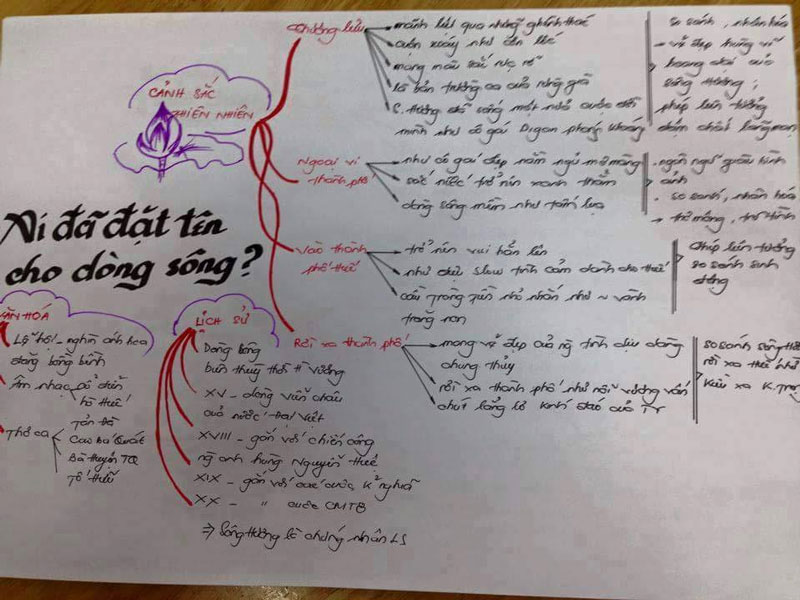 CẢNH SẮC
THIÊN NHIÊN
Ai đã đặt tên
cho dòng sông?
Thượng lưu
mãnh liệt qua những ghềnh thác
cuộn xoáy như cơn lốc
mang màu sắc rực rỡ
là bản trường ca của rừng già
S. Hương đã sống một nửa cuộc đời
mình như cô gái Digan phóng khoáng
so sánh, nhân hóa
→ vẻ đẹp hùng vĩ
hoang dại của
sông Hương;
phép liên tưởng
đậm chất lãng mạn
Ngoại vi
thành phố
như cô gái đẹp nằm ngủ mơ màng
sắc nước trở nên xanh thẳm
dòng sông mềm như tấm lụa
. ngôn ngữ giàu hình
ảnh
. so sánh, nhân hóa
→ thơ mộng, trữ tình
Vào thành
phố Huế
trở nên vui hẳn lên
như điệu slow tình cảm dành cho Huế
cầu Tràng Tiền nhỏ nhắn như ~ vành
trăng non
phép liên tưởng
so sánh sinh
động
Rời xa thành phố
mang vẻ đẹp của ng tình dịu dàng
chung thủy
rời xa thành phố như nỗi vương vấn
chút lẳng lơ kín đáo của TY
so sánh sông H
rời xa Huế như
Kiều xa K.Trọng
VĂN HÓA
Lễ hội - nghìn ánh hoa
đăng bồng bềnh
Âm nhạc cổ điển
hò Huế
Thơ ca
Tản Đà
Cao Bá Quát
Bà Huyện TQ
Tố Hữu
LỊCH SỬ
Dòng sông
biên thùy thời Hùng Vương
XV - dòng viễn châu
của nước Đại Việt
XVIII - gắn với chiến công
ng anh hùng Nguyễn Huệ
XIX - gắn với các cuộc k nghĩa
XX - " cuộc CMT8
⇒ Sông Hương là chứng nhân LS